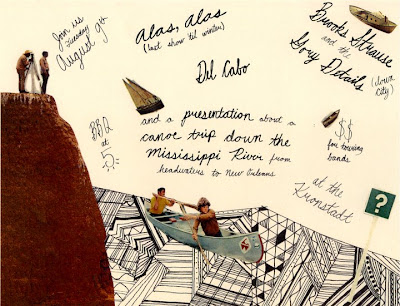 Join us
Tuesday
August 9th
Alas, Alas
(last show 'til winter)
Brooks Strause
and the
Gory Details
(Iowa
City)
Del Cabo
and a presentation about a
canoe trip down the
Mississippi River from
headwaters to New Orleans
BBQ
at
5:
$$
for touring
bands
at the
Kronstadt
?